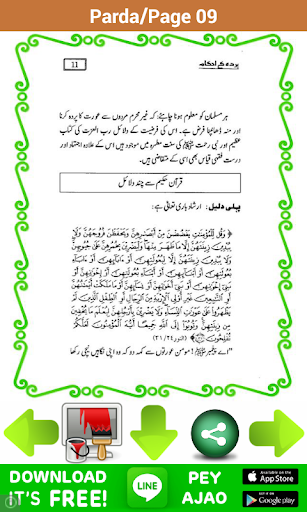 Parda/Page 09
پردہ کے احکام
11
ہر مسلمان کو معلوم ہونا چاہئے، کہ غیر محرم مردوں سے عورت کا پردہ کرنا
اور منہ ڈھانپنا فرض ہے۔ اس کی فرضیت کے دلائل رب العزت کی کتاب
عظیم اور نبی رحمت ﷺ کی سنت مطہرہ میں موجود ہیں اس کے علاوہ اجتہاد اور
درست فقہی قیاس بھی اسی کے متقاضی ہیں۔
قرآن حکیم سے چند دلائل
پہلی دلیل: ارشاد باری تعالیٰ ہے :
﴿ وَقُل لِّلْمُؤْمِنَٰتِ يَغْضُضْنَ مِنْ أَبْصَٰرِهِنَّ وَيَحْفَظْنَ فُرُوجَهُنَّ وَلَا
يُبْدِينَ زِينَتَهُنَّ إِلَّا مَا ظَهَرَ مِنْهَا وَلْيَضْرِبْنَ بِخُمُرِهِنَّ عَلَىٰ جُيُوبِهِنَّ
وَلَا يُبْدِينَ زِينَتَهُنَّ إِلَّا لِبُعُولَتِهِنَّ أَوْ ءَابَآئِهِنَّ أَوْ ءَابَآءِ
بُعُولَتِهِنَّ أَوْ أَبْنَآئِهِنَّ أَوْ أَبْنَآءِ بُعُولَتِهِنَّ أَوْ إِخْوَٰنِهِنَّ أَوْ
بَنِىٓ إِخْوَٰنِهِنَّ أَوْ بَنِىٓ أَخَوَٰتِهِنَّ أَوْ نِسَآئِهِنَّ أَوْ مَا مَلَكَتْ أَيْمَٰنُهُنَّ
أَوِ ٱلتَّٰبِعِينَ غَيْرِ أُو۟لِى ٱلْإِرْبَةِ مِنَ ٱلرِّجَالِ أَوِ ٱلطِّفْلِ ٱلَّذِينَ لَمْ
يَظْهَرُوا۟ عَلَىٰ عَوْرَٰتِ ٱلنِّسَآءِ وَلَا يَضْرِبْنَ بِأَرْجُلِهِنَّ لِيُعْلَمَ مَا يُخْفِينَ
مِن زِينَتِهِنَّ وَتُوبُوٓا۟ إِلَى ٱللَّهِ جَمِيعًا أَيُّهَ ٱلْمُؤْمِنُونَ لَعَلَّكُمْ
تُفْلِحُونَ ﴾ (النور ۲۴/ ۳۱)
"اے پیغمبر ﷺ! مومن عورتوں سے کہہ دو کہ وہ اپنی نگاہیں نیچی رکھا
DOWNLOAD
IT'S FREE!
LINE
PEY
AJAO
Available on the
App Store
GET IT ON
Google play